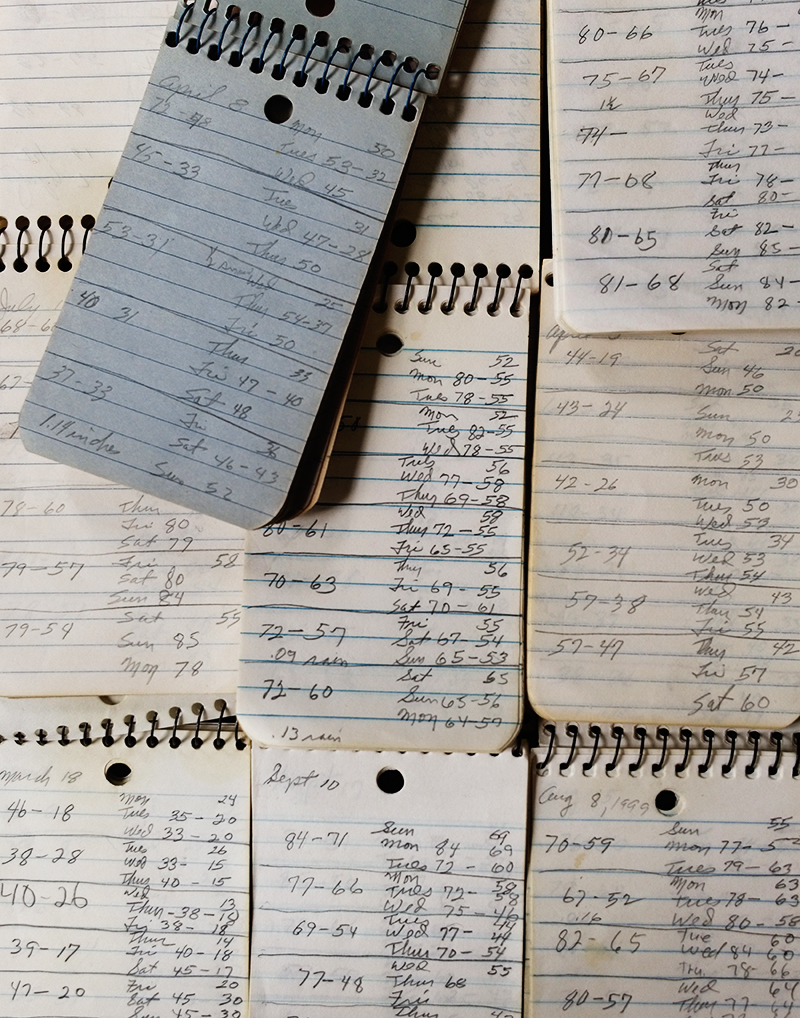 April 8
75-48 Mon 50
Tues 53-32
45-33 Wed 45
Tue 31
Wed 47-28
53-31 Thus 50
Wed 25
Thus 54-37
40 31 Fri 50
Thus 33
Fri 47-40
37-33 Sat 48
Fri 36
1.19 inches Sat 46-43
Sun 52
Mon
80-66 Tues 76-
Wed 75-
Tues
75-67 Wed 74-
Thus 75-
Wed
74- Thus 73-
Fri 77-
Thus
77-68 Fri 78-
Sat 80-
Fri
80-65 Sat 82-
Sun 85-
Sat
81-68 Sun 84-
Mon 82-
July
68-6
67-
78-60 Thus
Fri 80
Sat 79
79-57 Fri 58
Sat 80
Sun 84
79-54 Sat 55
Sun 85
Mon 78
Sun 52
Mon 80-55
Tues 78-55
Mon 52
Tues 82-55
Wed 78-55
Tues 56
Wed 77-58
Thus 69-58
Wed 58
80-61 Thus 72-55
Fri 65-55
Thus 56
70-63 Fri 69-55
Sat 70-61
Fri 55
72-57 Sat 67-54
.09 rain Sun 65-53
Sat 65
72-60 Sun 65-56
Mon 64-59
.13 rain
April
Sat
44-19 Sun 46
Mon 50
43-24 Sun
Mon 50
Tues 53
42-26 Mon 30
Tues 50
Wed 53
Tues 34
52-34 Wed 53
Thus 54
Wed 43
57-38 Thus 54
Fri 55
57-47 Thus 42
Fri 57
Sat 60
March 18
46-18 Mon 24
Tues 35-20
Wed 33-20
38-28 Tues 26
Wed 33-15
Thus 40-15
40-26 Wed 13
Thus-38-18
Fri 38-18
39-17 Thus 14
Fri 40-18
Sat 45-17
47-20 Fri 20
Sat 45 30
Sun 45-30
Sept 10
Sun 69
84-71 Mon 84 69
Tues 72-60
77-66 Mon 58
Tues 72-58
Wed 75-46
69-54 Tues 44
Wed 77-44
Thus 70-54
Wed 55
77-48 Thus 68
Fri
Thus
Aug 8, 1999
Sun 55
70-59 Mon 77-5
Tues 79-63
Mon 63
67-52 Tues 78-63
.16 Wed 80-58
Tue 60
82-65 Wed 84 60
Thu 78-66
Wed 64
80-57 Thus 77 64